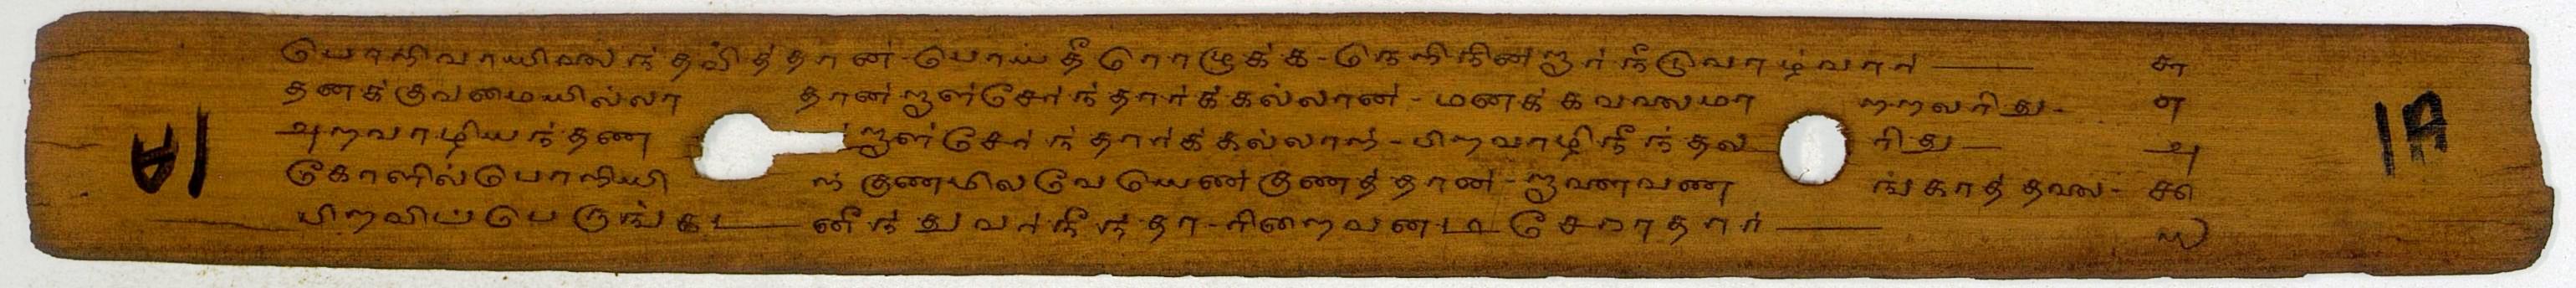 பொறிவாயிலைந்தவித்தான்-பொய்தீரொழுக்க-நெறிநின்றார்நீடுவாழ்வார் — ௬
தனக்குவமையில்லா தான்றாள்சேர்ந்தார்க்கல்லான்-மனக்கவலைமா ற்றலரிது- ௭
அறவாழியந்தண ன்றாள்சேர்ந்தார்க்கல்லாற்-பிறவாழிநீந்தல ரிது— ௮
கோளில்பொறியி ற்குணமிலவேயெண்குணத்தான்-றாளைவண ங்காத்தலை- ௯
பிறவிப்பெருங்கட னீந்துவர்நீந்தா-ரிறைவனடி சேராதார் — ௰